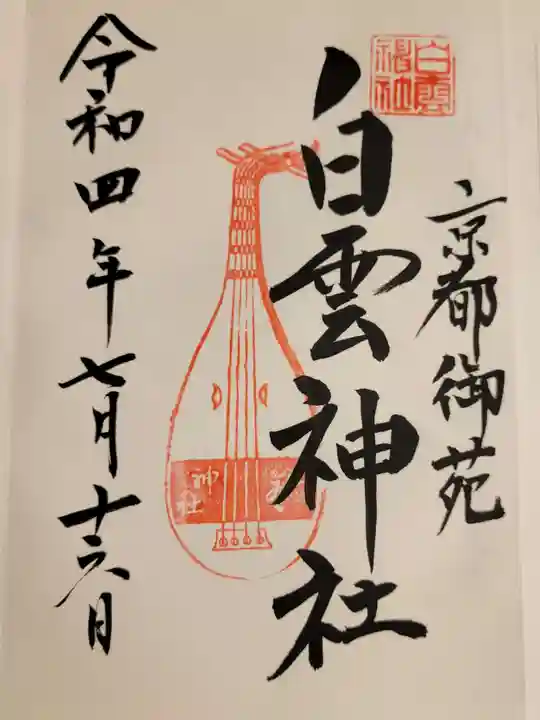 京都御苑
白雲神社
白雲
神社
令和四年七月十六日
神社